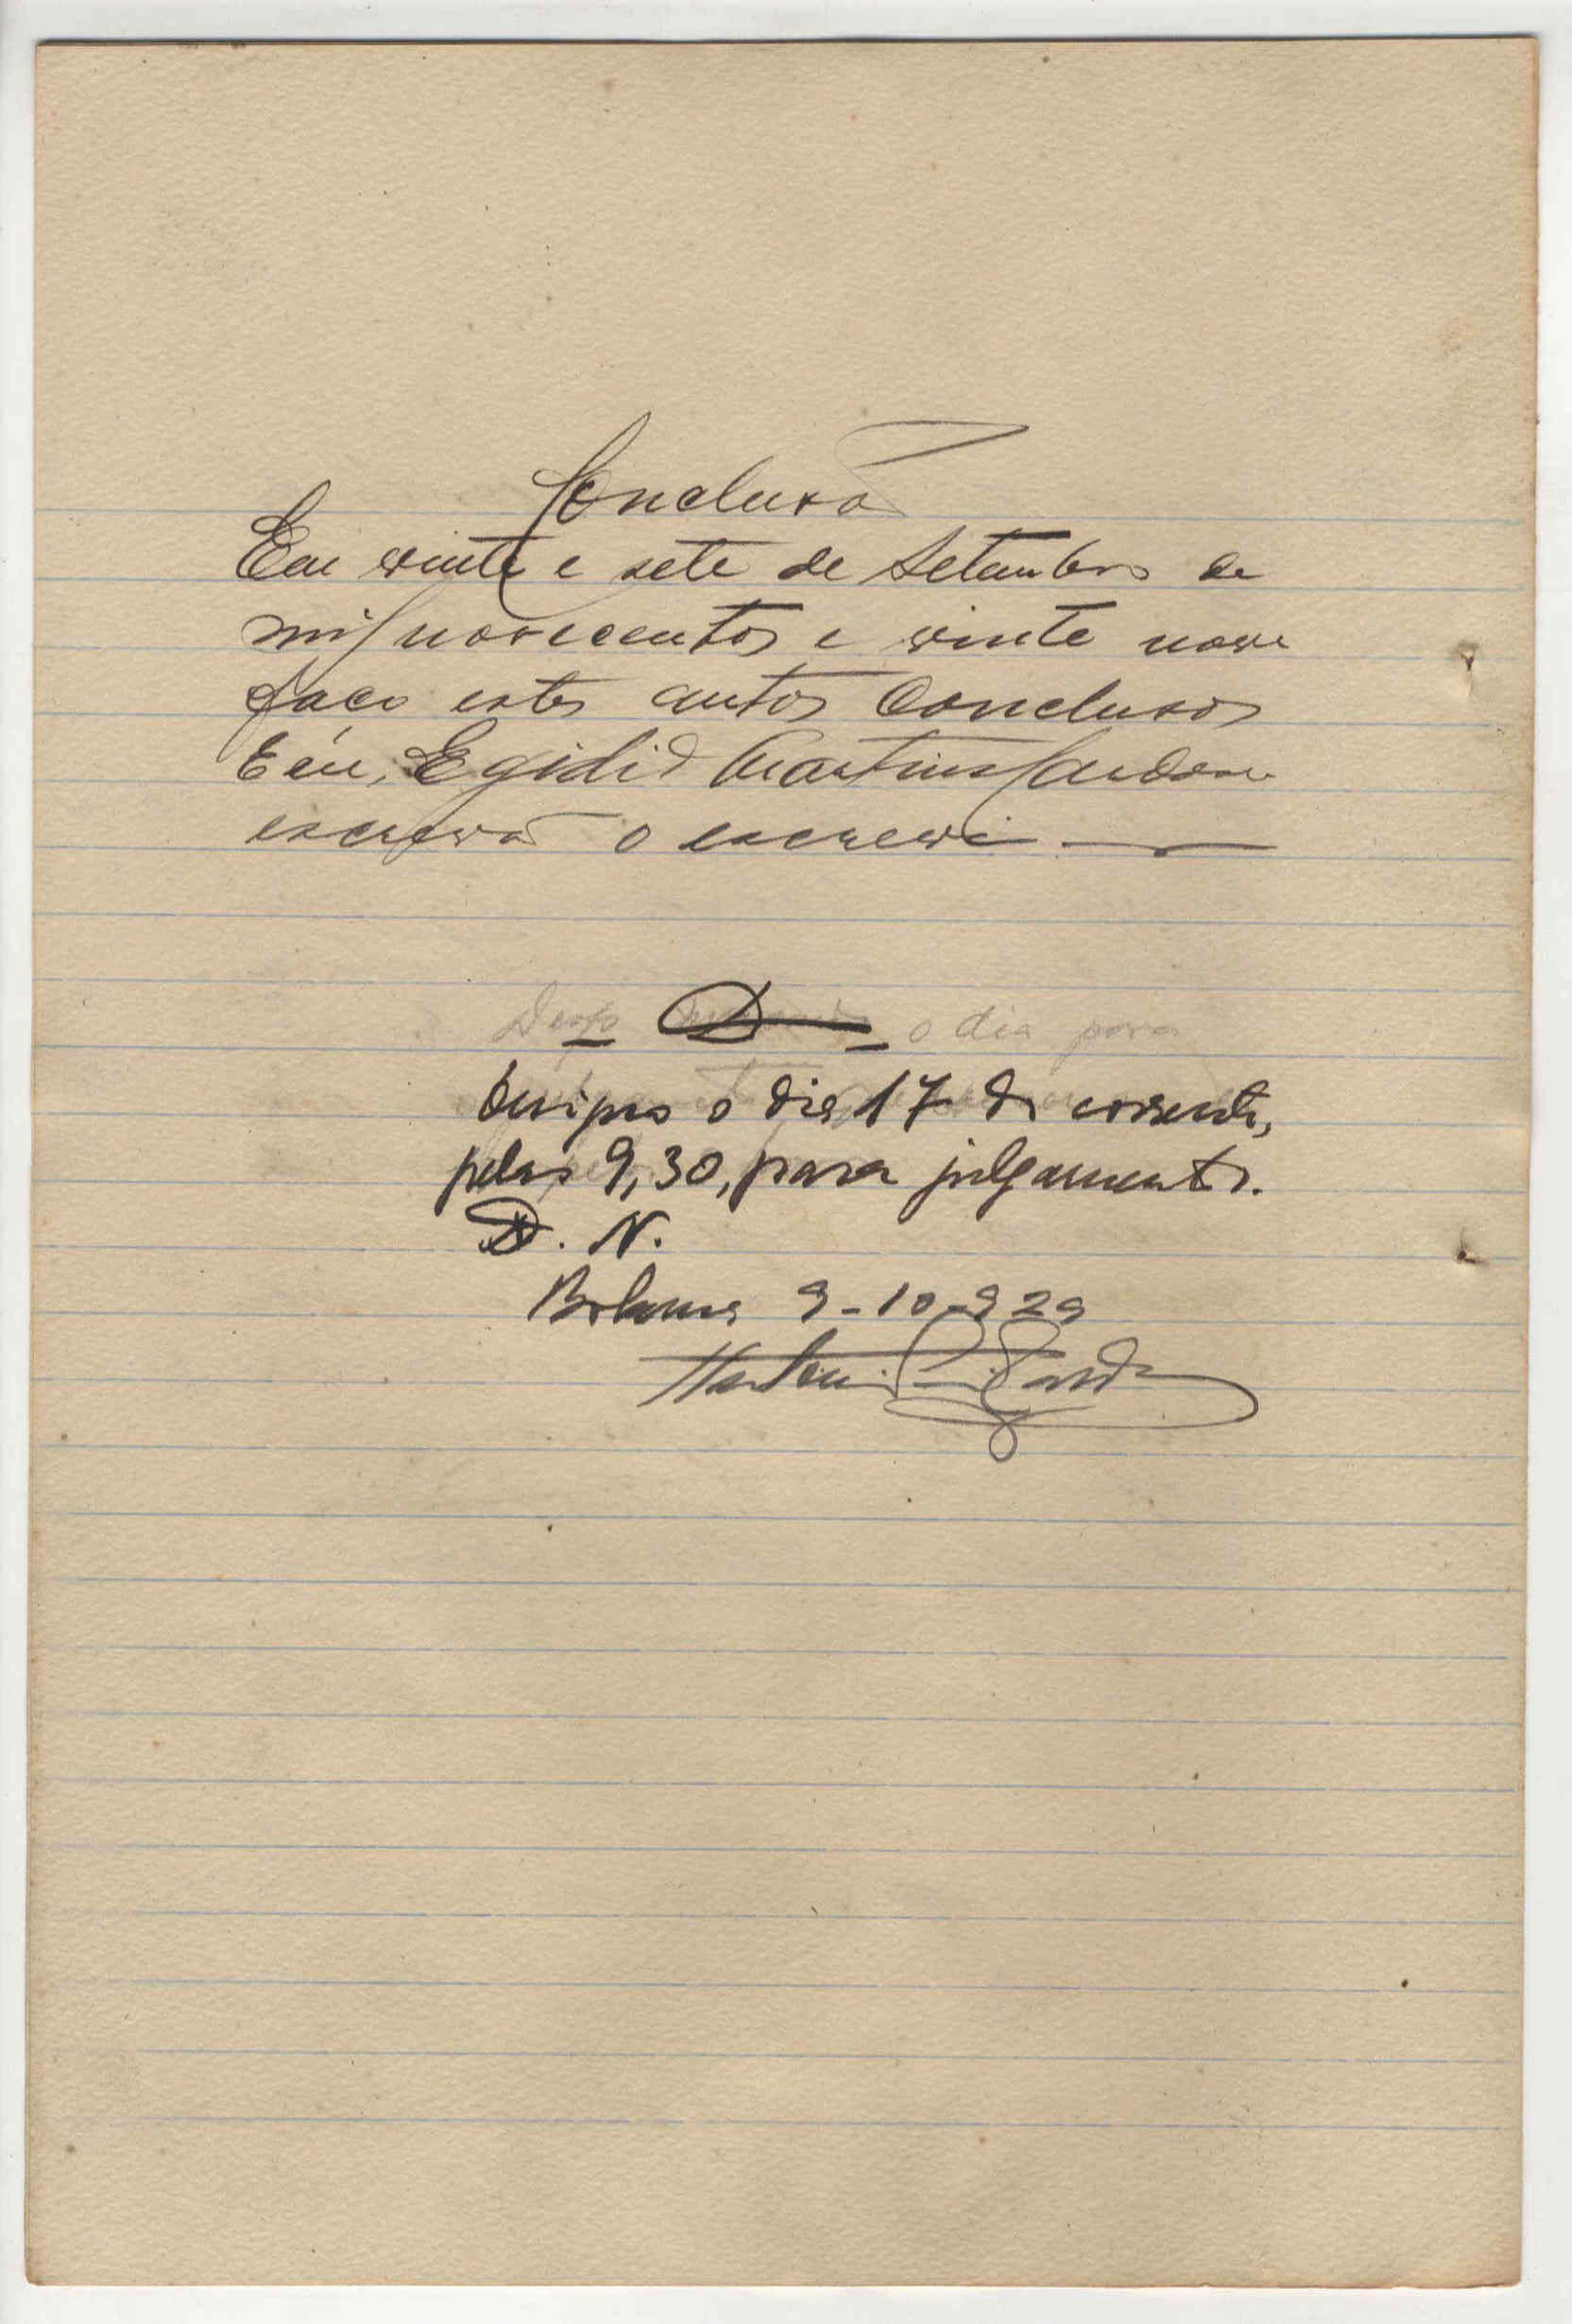 Conclusão
Em vinte e sete de Setembro de
mil novecentos e vinte nove
faço estes autos Conclusos
E eu, Egidio Martins Cardoso
escrivão o escrevi
D
o dia para
Designo o dia 17 do corrente,
pelas 9,30, para julgamento.
D. N.
Bolama 9-10-929